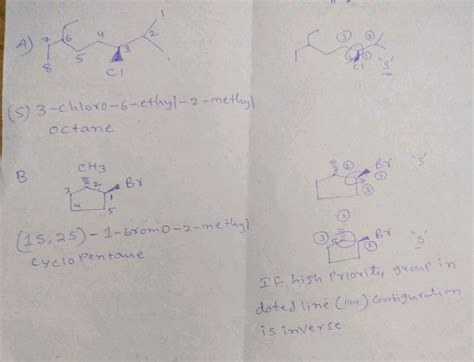 A)
1
7
6
4
2
3
8
5
Cl
(S) 3-chloro-6-ethyl-2-methyl
octane
B
CH3
3
2
Br
4
1
5
(1S,2S)-1-bromo-2-methyl
cyclopentane
Cl
"S"
Br
"S"
Br
"S"
IF high Priority group in
doted line configuration
is inverse